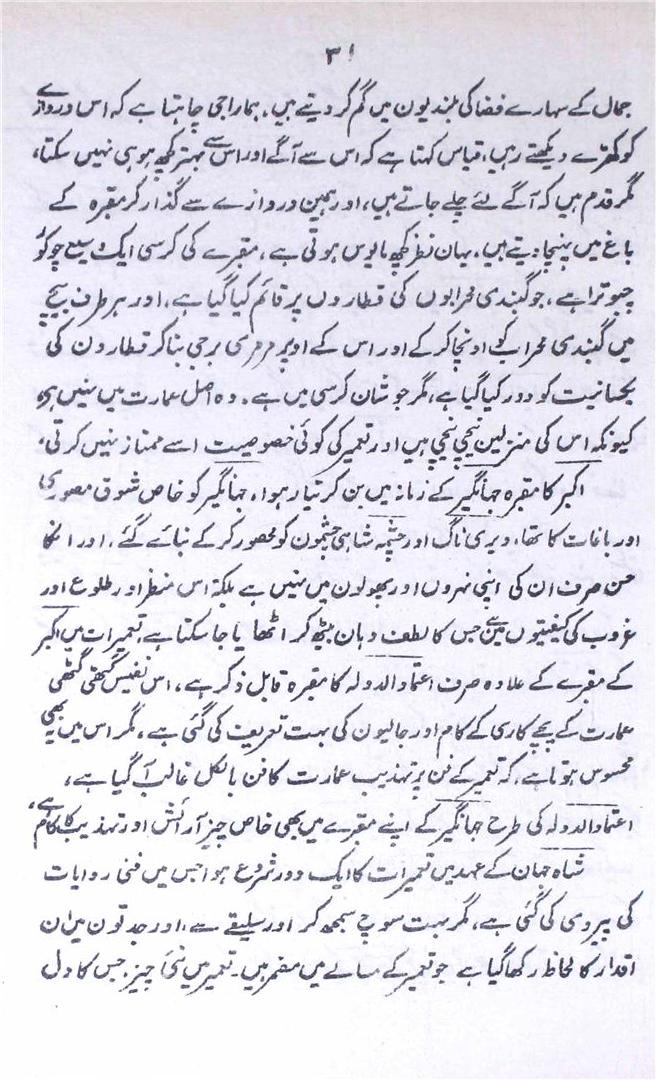 ۳۱
جمال کے سہارے فضا کی بلندیون میں گم کر دیتے ہیں، ہمارا جی چاہتا ہے کہ اس دروازے
کو کھڑے دیکھتے رہیں، قیاس کہتا ہے کہ اس سے آگے اور اس سے بہتر کچھ ہو ہی نہیں سکتا،
مگر قدم ہیں کہ آگے لئے چلے جاتے ہیں، اور ہمین دروازے سے گذار کر مقبرہ کے
باغ میں پہنچا دیتے ہیں۔ یہان نظر کچھ مایوس ہوتی ہے، مقبرے کی کرسی ایک وسیع چوکور
چبوترا ہے، جو گنبدی محرابوں کی قطاروں پر قائم کیا گیا ہے، اور ہر طرف بیچ
میں گنبدی محراب کو اونچا کرکے اور اس کے اوپر مرمری برجی بنا کر قطارون کی
یکسانیت کو دور کیا گیا ہے، مگر جو شان کرسی میں ہے۔ وہ اصل عمارت میں نہیں ہے
کیونکہ اس کی منزلین نیچی نیچی ہیں اور تعمیر کی کوئی خصوصیت اسے ممتاز نہیں کرتی،
اکبر کا مقبرہ جہانگیر کے زمانہ میں بن کر تیار ہوا، جہانگیر کو خاص شوق مصوری
اور باغات کا تھا، ویری ناگ اور چشمہ شاہی چشمون کو محصور کرکے بنائے گئے، اور انکا
حسن صرف ان کی اپنی نہروں اور پھولون میں نہیں ہے بلکہ اس منظر اور طلوع اور
غروب کی کیفیتوں میں ہے جس کا لطف وہان بیٹھ کر اٹھایا جا سکتا ہے، تعمیرات میں اکبر
کے مقبرے کے علاوہ صرف اعتماد الدولہ کا مقبرہ قابل ذکر ہے، اس نفیس گتھی گتھی
عمارت کے پچے کاری کے کام اور جالیون کی بہت تعریف کی گئی ہے، مگر اس میں یہ بھی
محسوس ہوتا ہے، کہ تعمیر کے فن پر تہذیب عمارت کا فن بالکل غالب آگیا ہے،
اعتماد الدولہ کی طرح جہانگیر کے اپنے مقبرے میں بھی خاص چیز آرائش اور تہذیب کا کام ہے،
شاہ جہان کے عہد میں تعمیرات کا ایک دور شروع ہوا جس میں فنی روایات
کی پیروی کی گئی ہے، مگر بہت سوچ سمجھ کر اور سلیقے سے، اور جدتون میں ان
اقدار کا لحاظ رکھا گیا ہے جو تعمیر کے مسالے میں مضمر ہیں۔ تعمیر میں نئی چیز، جس کا دل